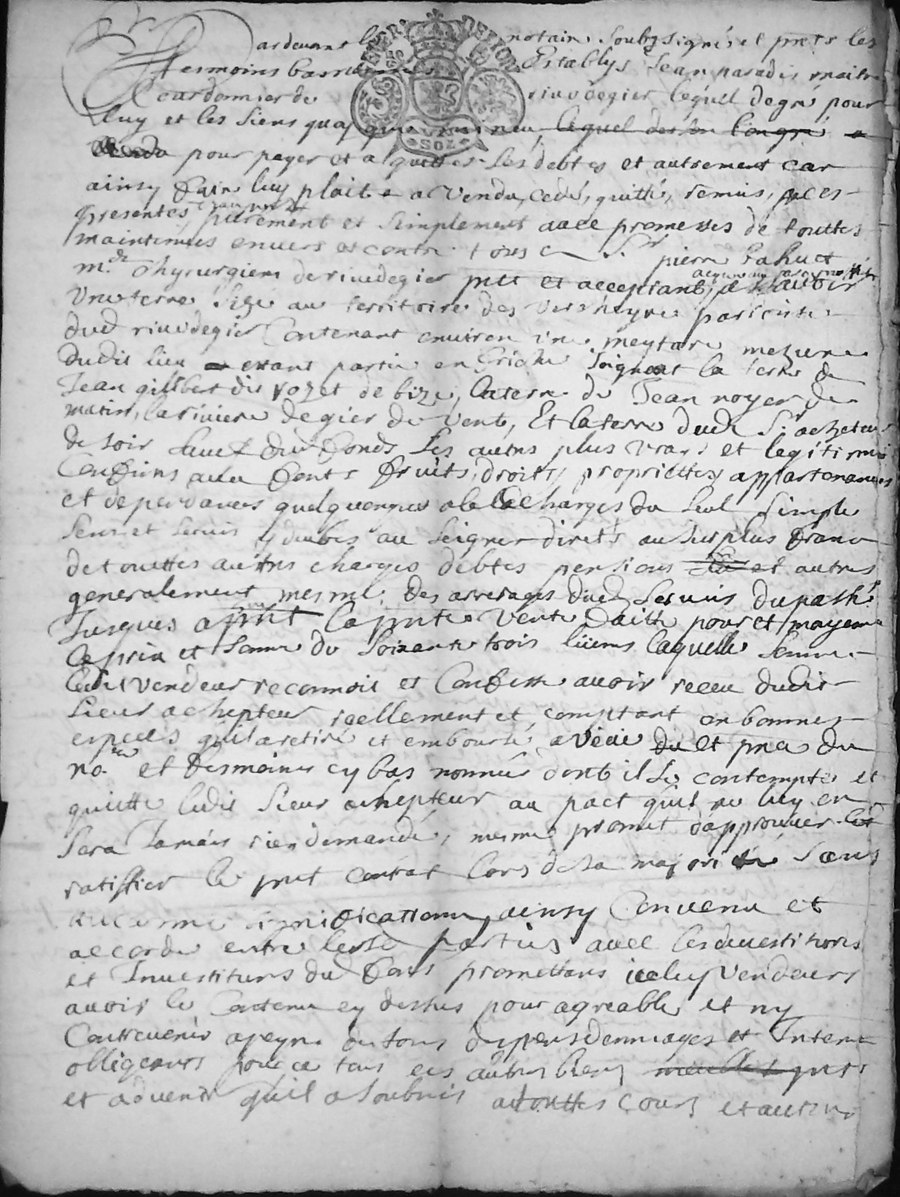 Pardevant le notaire soubzsigné et pntz les
tesmoins bas Establys Jean paradis maitre
Courdonnier de rivedegier lequel de gré pour
luy et les siens lequel de son bon gré a
vendu pour payer et alquitter ses debtes et autrement car
ainsy faire luy plait a vendu, cedé, quitté, remis, par ces
presentes purement et simplement avec promesses de touttes
maintenues envers et contre tous a Sr pierre Lahuet
me Chyrurgien de rivedegier pnt et acceptant, a scavoir
une terre size au territoire des verchery parroisse
dud rivedegier Contenant environ une meytare mezure
dudit lieu estant partie en friche joignant la terre de
Jean gilibert dit rozet de bize, la terre de Jean noyer de
matin, la riviere de gier de vent, Et la terre dud Sr achepteur
de soir sauf dud fonds ses autres plus vrais et legitimes
Confins avec fonts fruits, droits, proprietés appartenances
et dependances quelquonques a la charge du seul simple
sens et servis y deubes au seigneur direct au surplus franc
de touttes autres charges debtes pensions et autres
generalement mesme des arrerages dud servis du passé
Jusques a pnt La pnte vente faite pour et moyennant
le prix et somme de soixante trois livres laquelle somme
ledit vendeur reconnoit et Confesse avoir receu dudit
sieur achepteur reellement et comptant en bonnes
especes qu'il a retiré et emboursé a veüe et pnce du
nore et tesmoins cy bas nommés dont il se contempte et
quitte ledit sieur achepteur au pact qu'il ne luy en
sera jamais rien demandé, mesme promet d'approuver et
ratiffier le pnt contrat lors de sa majorité sans
aucunne ainsy Convenu et
accordé entre lesd parties avec les devestitures
et Investitures du fons promettant iceluy vendeurs
avoir le Contenu cy dessus pour agreable et ny
Contrevenir a peyne de tous depens dommages et Interes
obligeants pour ce tous ces autres biens pnts
et advenir qu'il a soubmis a touttes cours et autre